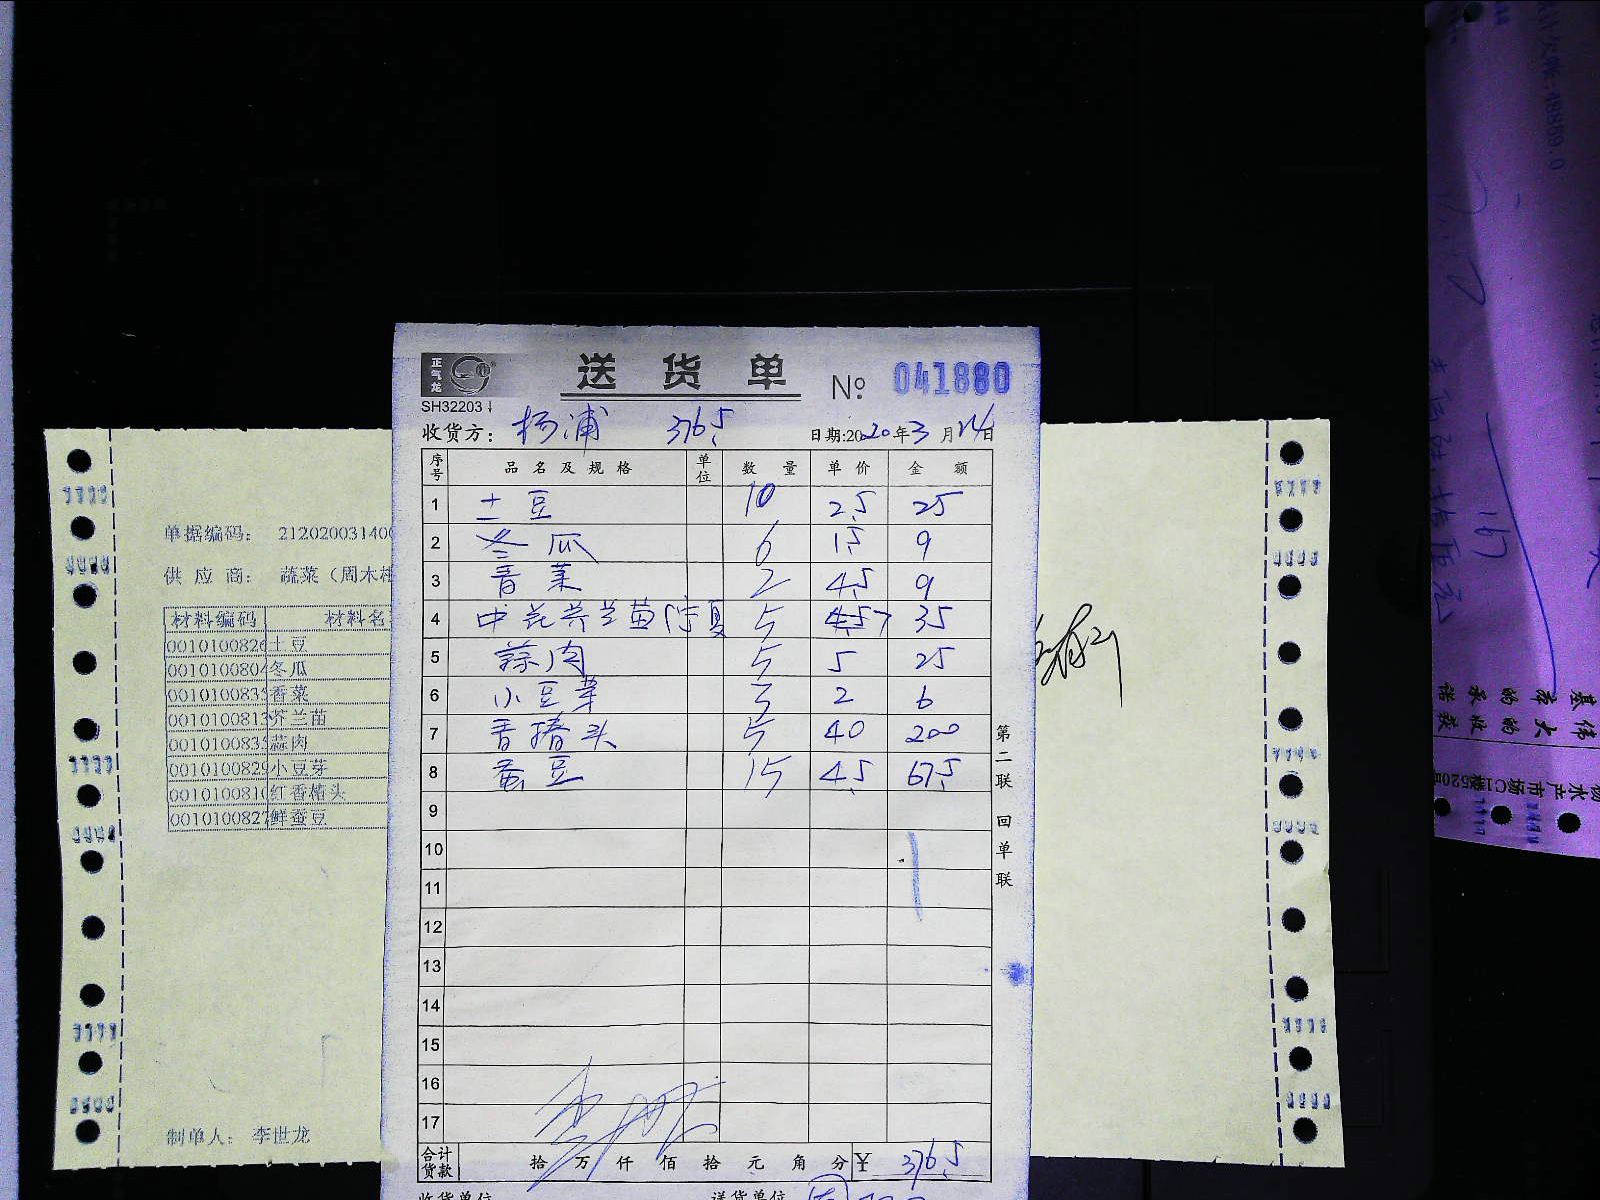 正气龙
送货单 № 041880
SH32203
收货方: 杨浦 376.5 日期:2020年3月14日
序号 品名及规格 单位 数量 单价 金额
1 土豆 10 2.5 25
2 冬瓜 6 1.5 9
3 香菜 2 4.5 9
4 中花芥兰苗 5 7 35
5 蒜肉 5 5 25
6 小豆芽 3 2 6
7 香椿头 5 40 200
8 蚕豆 15 4.5 67.5
9
10
11
12
13
14
15
16
17
合计货款 拾 万 仟 佰 拾 元 角 分 ¥ 376.5
收货单位 送货单位
第二联 回单联
单据编码: 212020031400
供应商: 蔬菜(周木桂
材料编码 材料名
0010100826 土豆
0010100804 冬瓜
001010083 香菜
0010100813 芥兰苗
001010083 蒜肉
0010100829 小豆芽
001010081 红香椿头
0010100827 鲜蚕豆
制单人: 李世龙
167